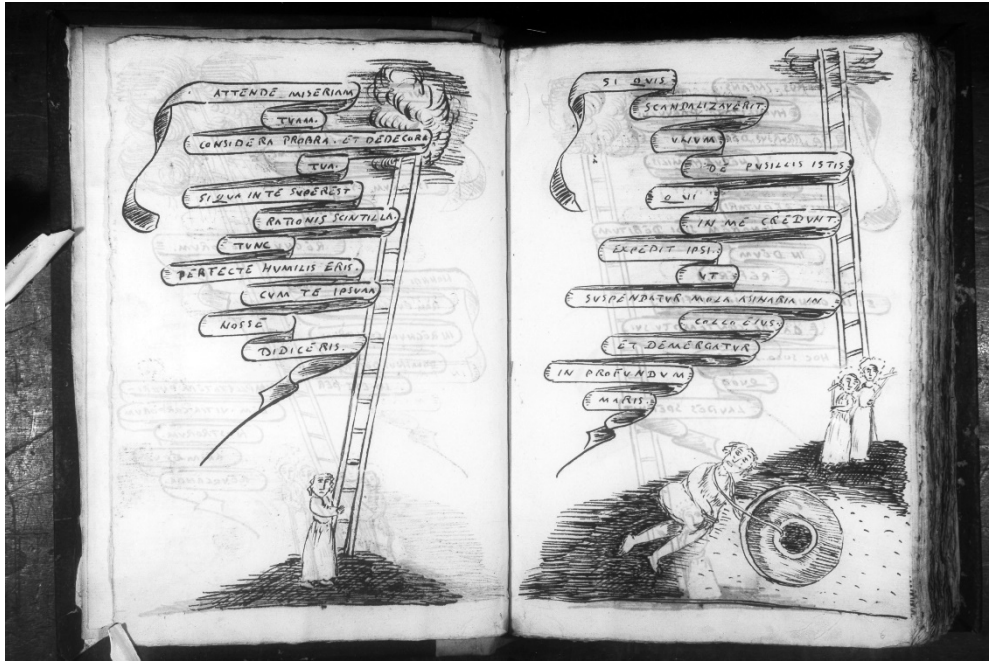 ATTENDE MISERIAM
TVAM.
CONSIDERA PROBRA. ET DEDECORA
TVA.
SI QVA IN TE SVPEREST
RATIONIS SCINTILLA.
TVNC
PERFECTE HVMILIS ERIS.
CVM TE IPSVM
NOSSE
DIDICERIS.
SI QVIS
SCANDALIZAVERIT.
VNVM
DE PVSILLIS ISTIS
QVI
IN ME CREDVNT.
EXPEDIT IPSI.
VT
SVSPENDATVR MOLA ASINARIA IN
COLLO EIVS.
ET DEMERGATVR
IN PROFVNDVM
MARIS.